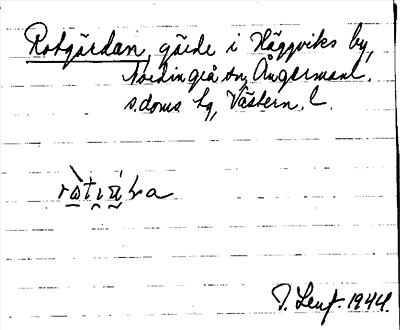 Rotgärdan, gärde i Häggviks by,
Nordingrå sn, Ångermanl.
s. doms hg, Västern. l.
1944.